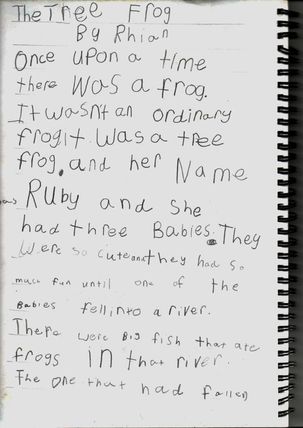 The Tree Frog
By Rhian
Once upon a time
there was a frog.
It wasn't an ordinary
frog it was a tree
frog. and her Name
was Ruby and she
had three Babies. They
were so cute and they had so
much fun until one of the
Babies fell into a river.
There were Big fish that ate
frogs in that river.
The one that had fallen